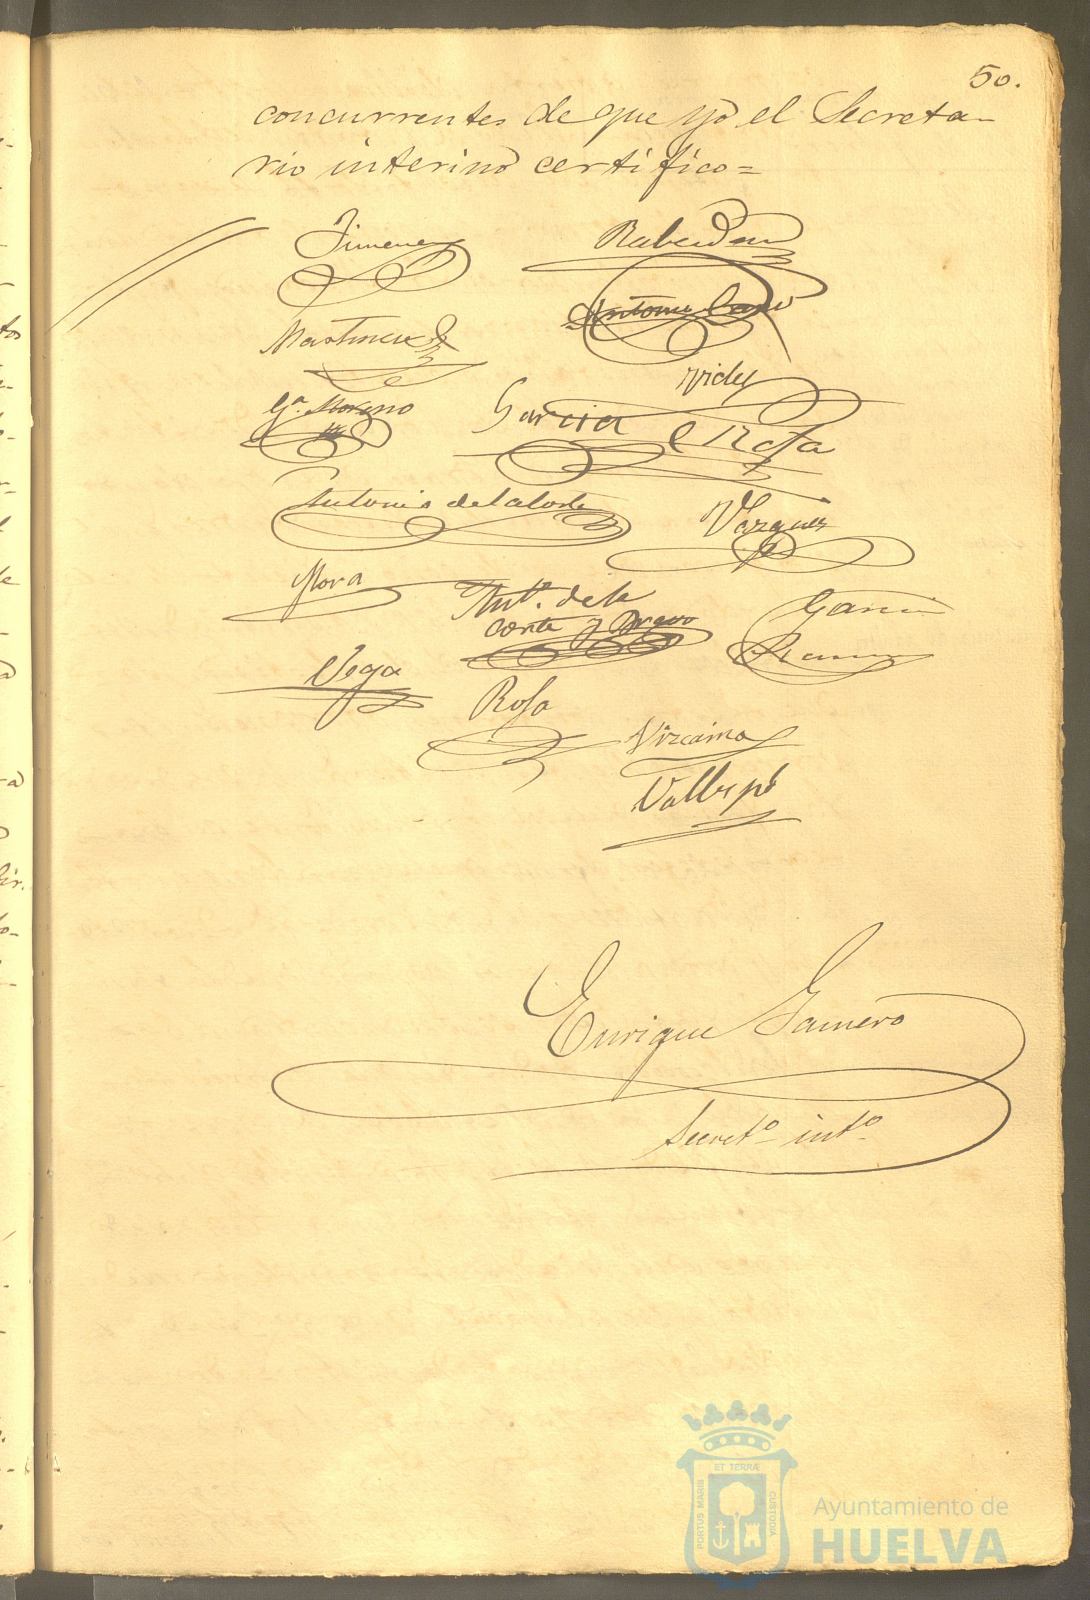 50.
concurrentes de que yo el Secreta-
rio interino certifico=
Jimenez
Antonio
Martinez
Videz
Ga. Moreno
Garcia
Antonio de la Corte
Vazquez
Mora
Anto. de la
Corte y Bravo
Garcia
Ramos
Vega
Rosa
Vizcaino
Vallespí
Enrique Gamero
Secreto. into.
ET TERRÆ
PORTUS MARIS
CUSTODIA
Ayuntamiento de
HUELVA